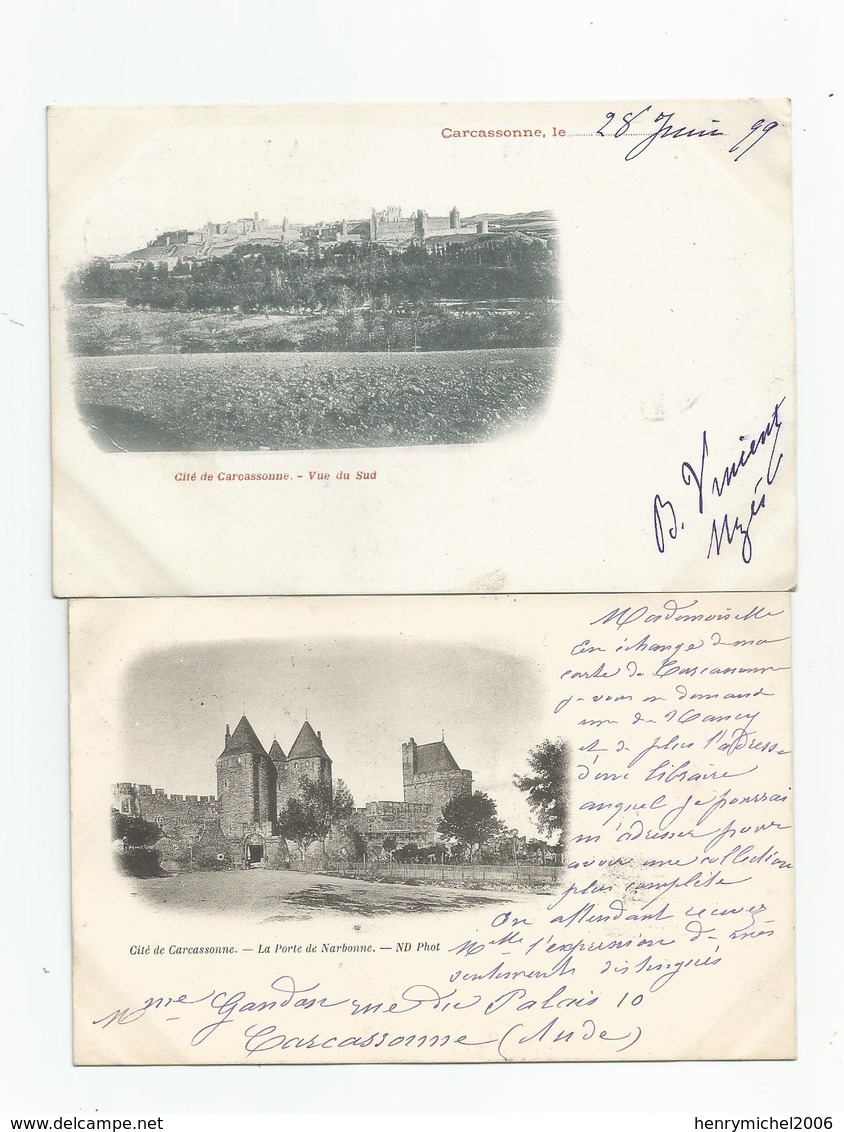 Carcassonne, le 28 Juin 99
Cité de Carcassonne. - Vue du Sud
B. Vincent
Uzès
Mademoiselle
En échange de ma
carte de Carcassonne
je vous en demande
une de Nancy
et de plus l'adresse
d'un libraire
auquel je pourrai
m'adresser pour
avoir une collection
plus complète
En attendant recevez
Mlle l'expression de mes
sentiments distingués
Cité de Carcassonne. — La Porte de Narbonne. — ND Phot
Mme Gandon rue du Palais 10
Carcassonne (Aude)
henrymichel2006